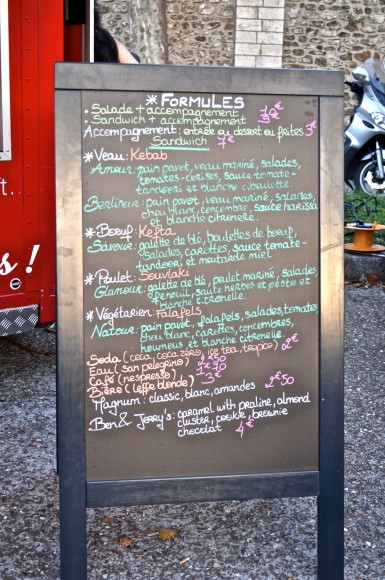 * FORMULES
• Salade + accompagnement
• Sandwich + accompagnement
Accompagnement : entrée ou dessert ou frites 3€
Sandwich 7€
* Veau : Kebab
Amour : pain pavot, veau mariné, salades,
tomates-cerises, sauce tomate-
tandoori et blanche ciboulette.
Berlineur : pain pavot, veau mariné, salades,
chou blanc, concombre, sauce harissa
et blanche citronelle.
* Bœuf : Kefta
Saveur : galette de blé, boulettes de bœuf,
salades, carottes, sauce tomate-
tandoori et moutarde miel.
* Poulet : Souvlaki
Glamour : galette de blé, poulet mariné, salades,
fenouil, sauce herbes et pesto et
blanche citronelle.
* Végétarien : Falafels
Natour : pain pavot, falafels, salades, tomates,
chou blanc, carottes, concombres,
houmous et blanche citronelle.
Soda (coca, coca zéro, ice tea, tropico) 2€
Eau (san pelegrino) 2€50
Café (nespresso) 1€50
Bière (leffe blonde) 3€
Magnum : classic, blanc, amandes 2€50
Ben & Jerry's : caramel with praline, almond
cluster, cookie, brownie
chocolat 4€
t...
s !